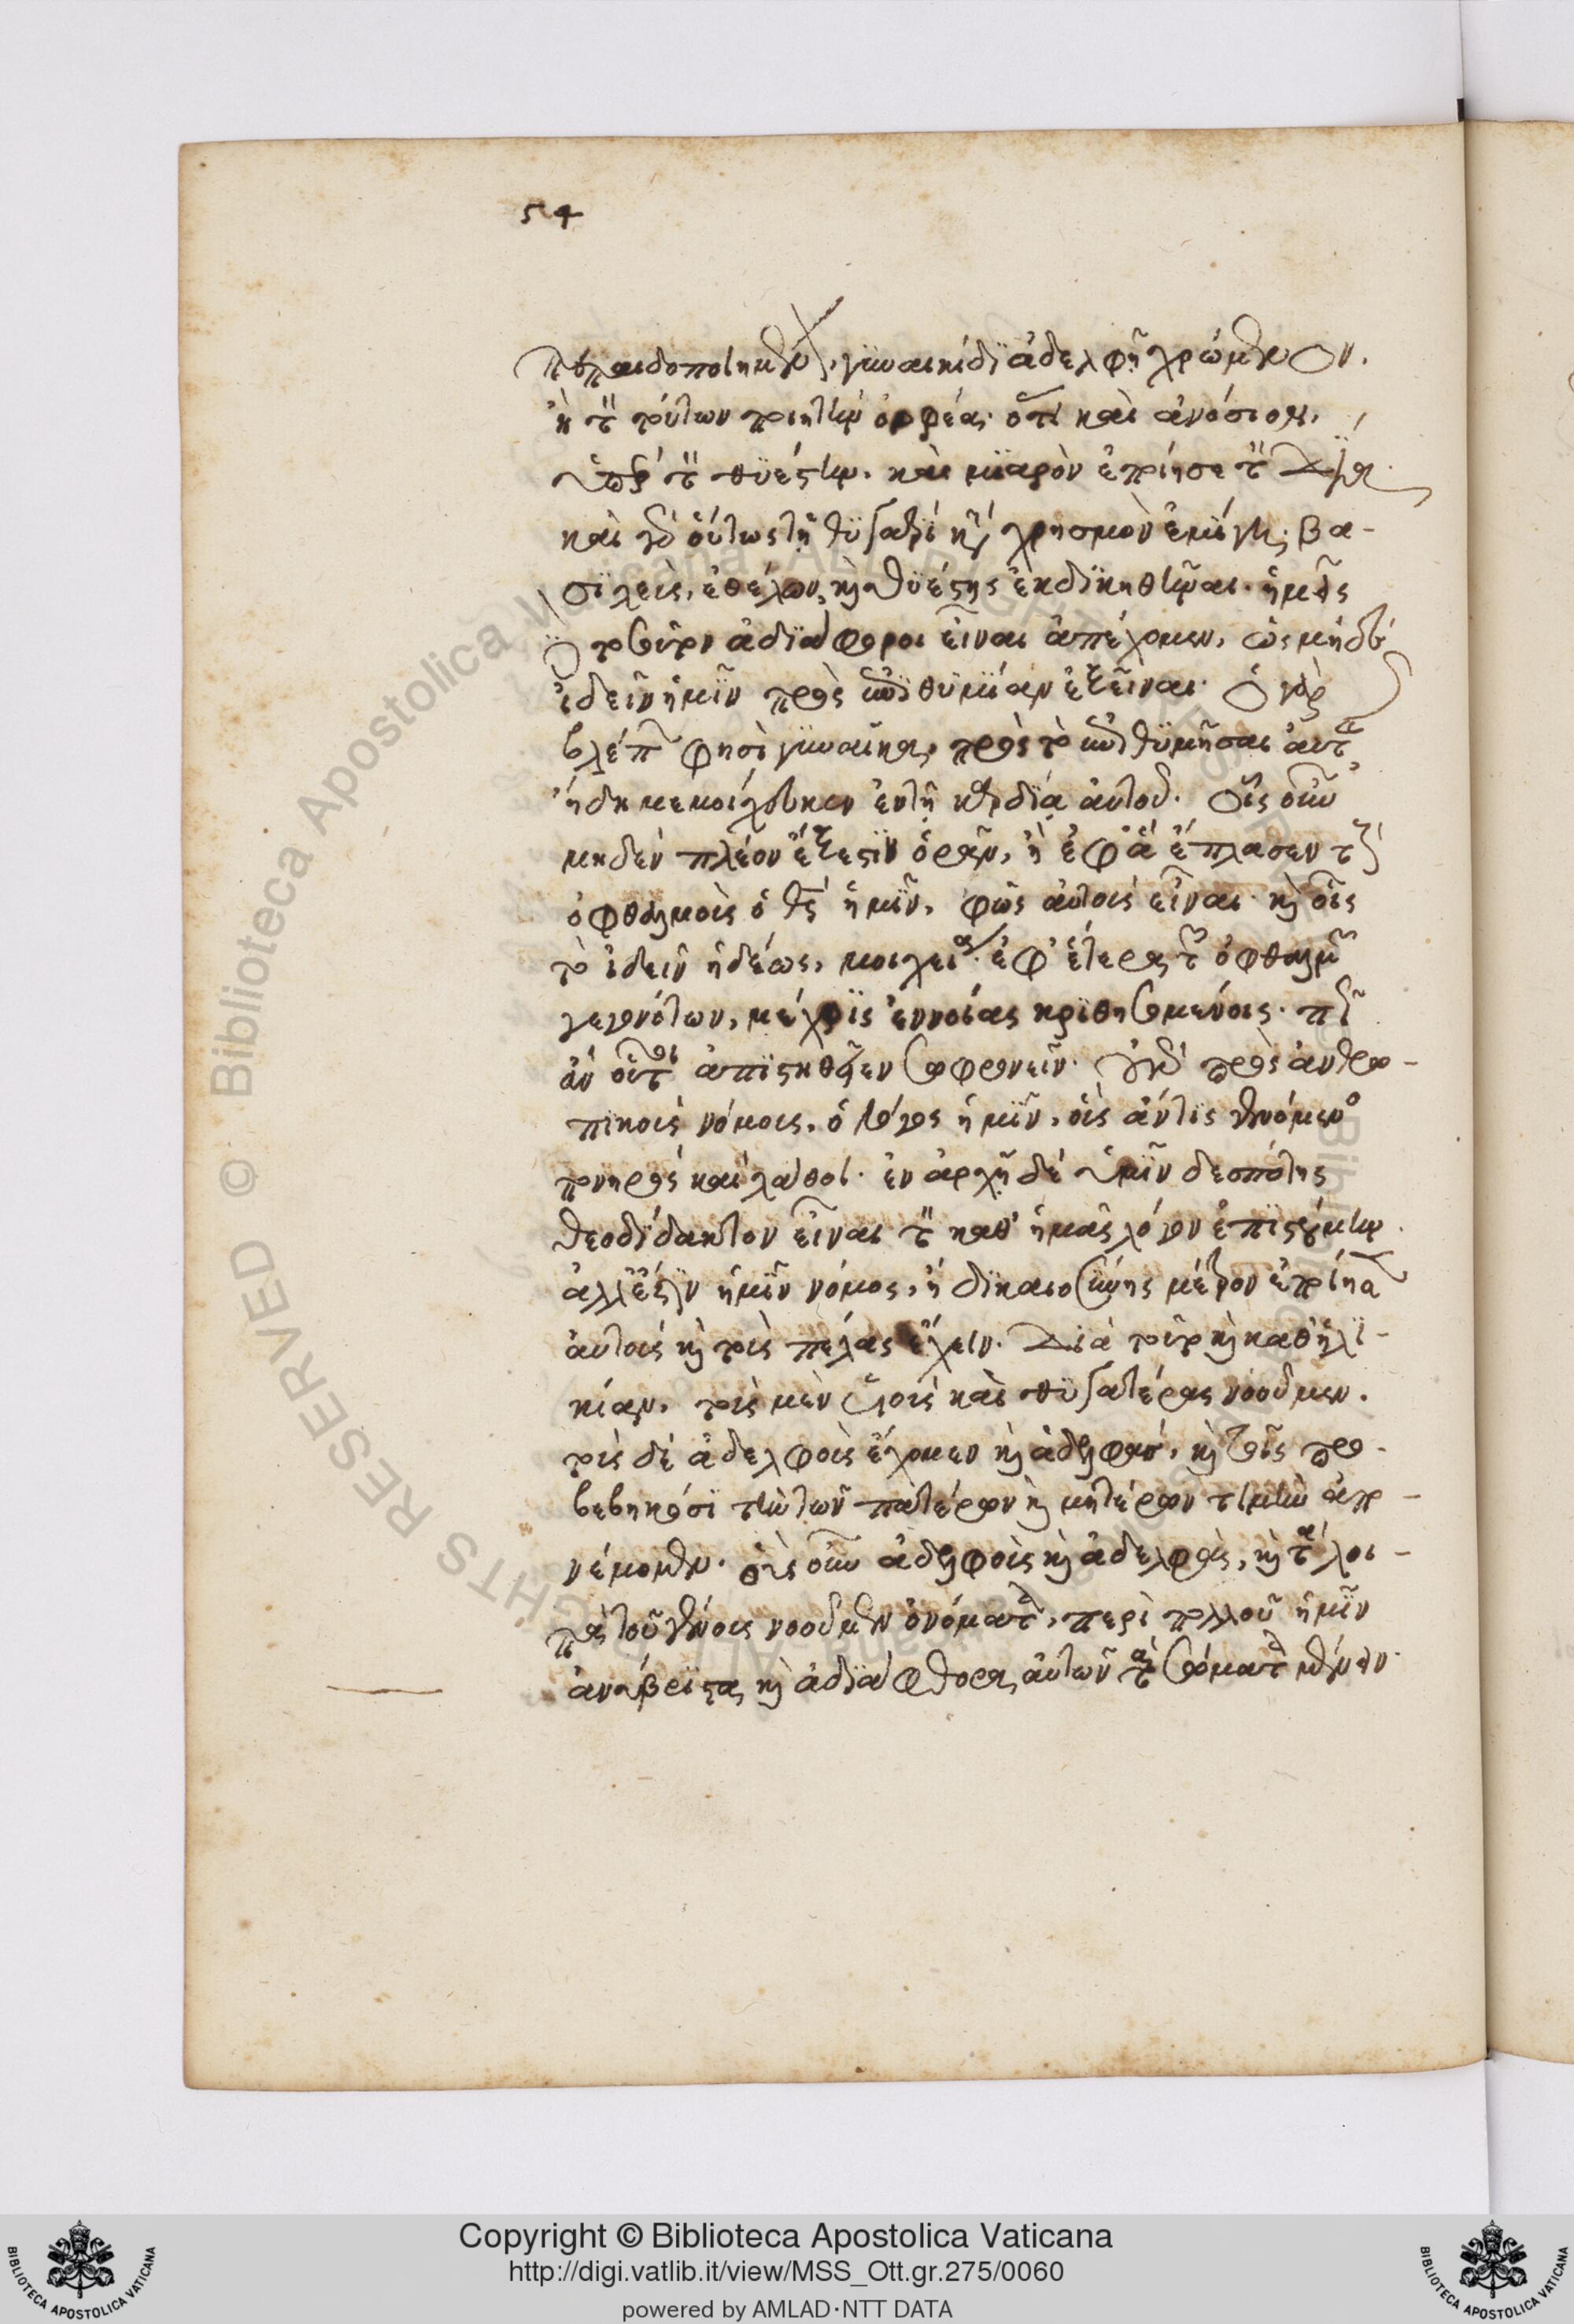 54
πεπαιδοποιημένον, γυναικὶ δὲ ἀδελφῇ χρώμενον.
ἢ τὸν τούτων ποιητὴν ὀρφέα. ὅτι καὶ ἀνόσιον,
ὑπὲρ τὸν θυέστην. καὶ μιαρὸν ἐποίησε τὸν Δία.
καὶ γὰρ οὗτος τῇ θυγατρὶ κατὰ χρησμὸν ἐμίγη. βα-
σιλεύειν, ἐθέλων, καὶ θυέστης ἐκδικηθῆναι. ἡμεῖς
δὲ τοσοῦτον ἀδιάφοροι εἶναι ἀπέχομεν, ὡς μηδὲ
ἰδεῖν ἡμῖν πρὸς ἐπιθυμίαν ἐξεῖναι. ὁ γὰρ
βλέπων φησὶ γυναῖκα, πρὸς τὸ ἐπιθυμῆσαι αὐτῆς
ἤδη μεμοίχευκεν ἐν τῇ καρδίᾳ αὐτοῦ. οἷς οὖν
μηδὲν πλέον ἔξεστιν ὁρᾶν, ἢ ἐφ' ἃ ἔπλασεν τοὺς
ὀφθαλμοὺς ὁ θεὸς ἡμῖν, φῶς αὐτοὺς εἶναι. καὶ οἷς
τὸ ἰδεῖν ἡδέως, μοιχεία. ἐφ' ἕτερα τῶν ὀφθαλμῶν
γεγονότων, μέχρις ἐννοίας κριθησομένοις. πῶς
ἂν οὗτοι ἀπιστηθεῖεν σωφρονεῖν. οὐ γὰρ πρὸς ἀνθρω-
πικοὺς νόμους, ὁ λόγος ἡμῖν, οὓς ἄν τις γενόμενος
πονηρὸς καὶ λάθοι. ἐν ἀρχῇ δὲ ὑμῖν δεσπότης
θεοδίδακτον εἶναι τὸν καθ' ἡμᾶς λόγον ἐπιστούμην.
ἀλλ' ἔστιν ἡμῖν νόμος, ἢ δικαιοσύνης μέτρον ἐποίησεν
αὐτοὺς καὶ τοὺς πέλας ἔχειν. Διὰ τοῦτο καὶ καθ' ἡλι-
κίαν, τοὺς μὲν υἱοὺς καὶ θυγατέρας νοοῦμεν.
τοὺς δὲ ἀδελφοὺς ἔχομεν καὶ ἀδελφάς, καὶ τοῖς προ-
βεβηκόσι τὴν τῶν πατέρων καὶ μητέρων τιμὴν ἀπο-
νέμομεν. οὓς οὖν ἀδελφοὺς καὶ ἀδελφὰς, καὶ τὰ λοι-
πὰ τοῦ γένους νοοῦμεν ὀνόματα, περὶ πολλοῦ ἡμῖν
ἀνύβριστα καὶ ἀδιάφθορα αὐτῶν τὰ σώματα μένειν.
Copyright © Biblioteca Apostolica Vaticana
http://digi.vatlib.it/view/MSS_Ott.gr.275/0060
powered by AMLAD·NTT DATA